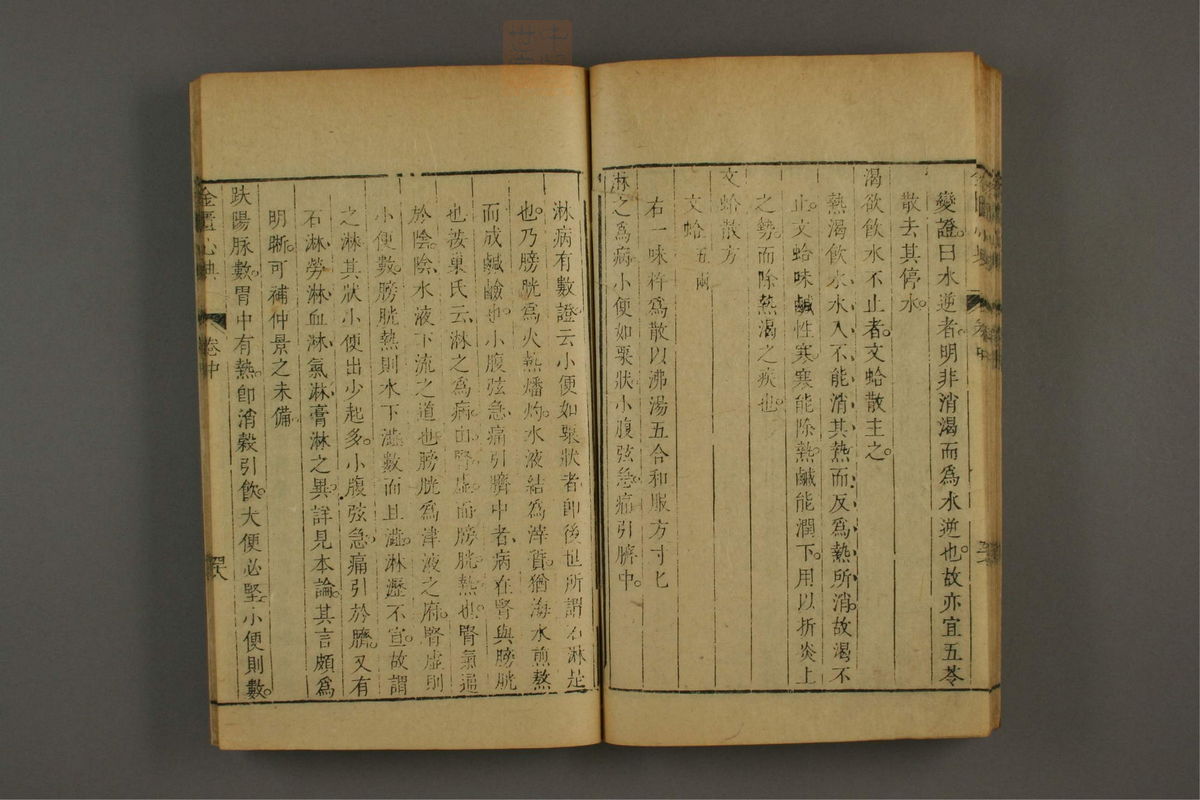 變證。曰水逆者。明非消渴而爲水逆也。故亦宜五苓
散去其停水。
渴欲飲水不止者。文蛤散主之。
熱渴飲水。水入不能消其熱。而反爲熱所消。故渴不
止。文蛤味鹹性寒。寒能除熱。鹹能潤下。用以折炎上
之勢。而除熱渴之疾也。
文蛤散方
文蛤五兩
右一味杵爲散以沸湯五合和服方寸匕
淋之爲病。小便如粟狀。小腹弦急。痛引臍中。
淋病有數證。云小便如粟狀者。即後世所謂石淋是
也。乃膀胱爲火熱燔灼。水液結爲滓質。猶海水煎熬
而成鹹鹼也。小腹弦急。痛引臍中者。病在腎與膀胱
也。按巢氏云。淋之爲病。由腎虛而膀胱熱也。腎氣通
於陰。陰、水液下流之道也。膀胱爲津液之府。腎虛則
小便數。膀胱熱則水下濇。數而且濇。淋瀝不宣。故謂
之淋。其狀小便出少起多。小腹弦急。痛引於臍。又有
石淋、勞淋、血淋、氣淋、膏淋之異。詳見本論。其言頗爲
明晰。可補仲景之未備。
趺陽脉數。胃中有熱。即消穀引飲。大便必堅。小便則數。
金匱心典
卷中